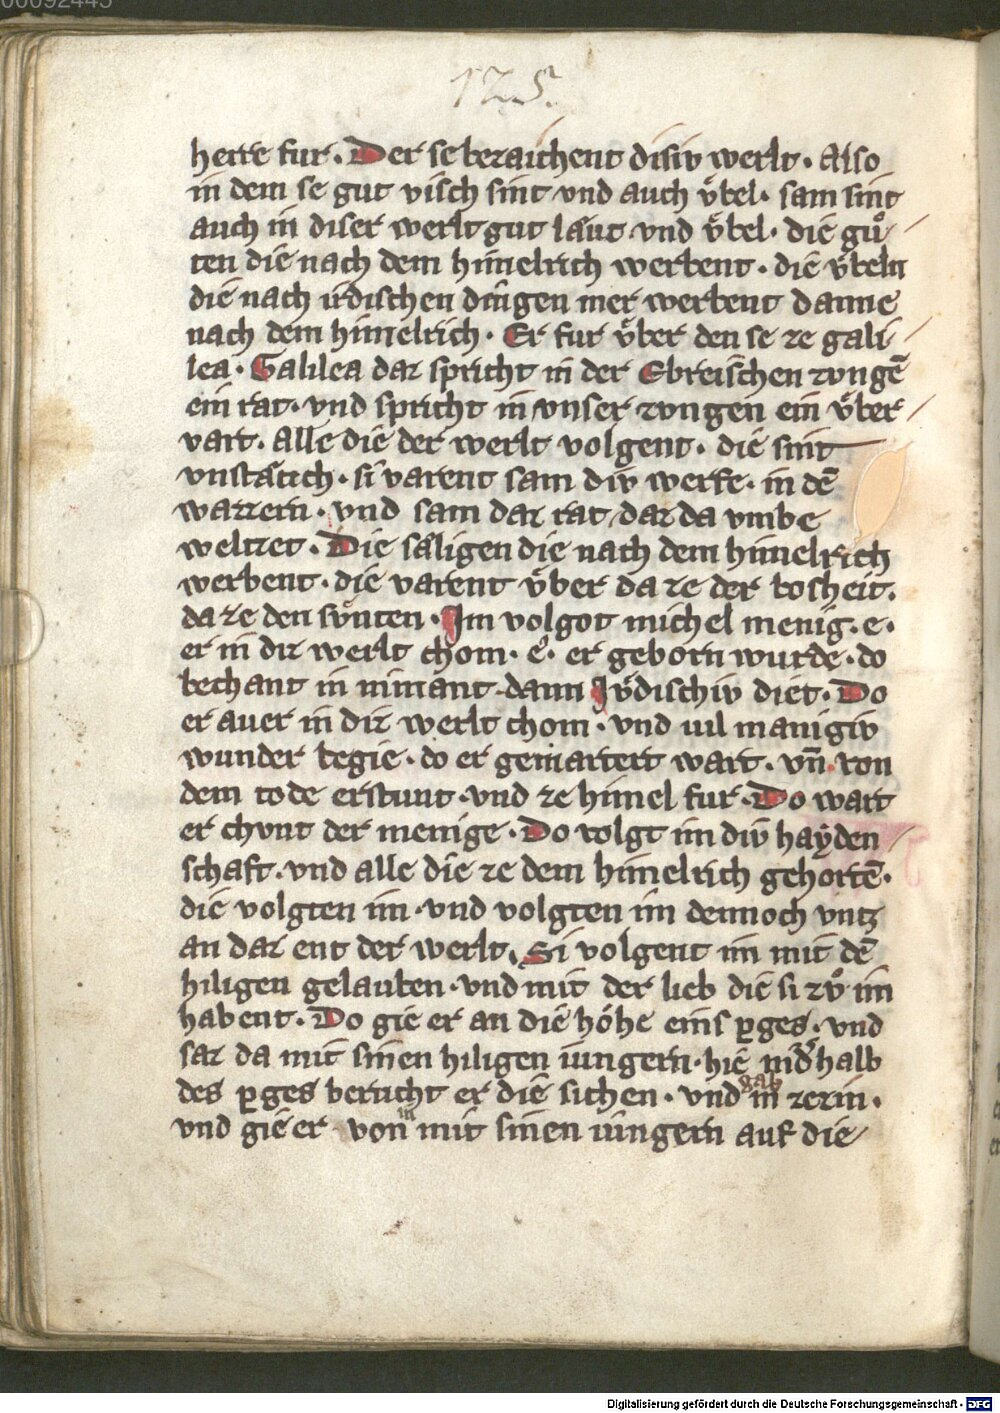 00092445
125.
herre fur. Der se bezaichent disiv werlt. Also
in dem se gut visch sint vnd auch v̊bel. sam sint
auch in diser werlt gut låut vnd v̊bel. die gů/
ten die nach dem himelrich werbent. die v̊beln
die nach irdischen dingen mer werbent danne
nach dem himelrich. Er fur v̊ber den se ze gali/
lea. Galilea daz spricht in der Ebreischen zvngē
ein rat. vnd spricht in vnser zvngen ein v̊ber/
vart. Alle die der werlt volgent. die sint
vnståtich. si varent sam div werke. in dē
wazzern. vnd sam daz rat daz da vmbe
welzet. Die såligen die nach dem himelrich
werbent. die varent v̊ber da ze der bosheit.
da ze den sv̊nten. Im volgot michel menig. e.
er in diz werlt chom. e. er geborn wurde. do
bechant in nimant dann Jv̊dischiv diet. Do
er auer in diz werlt chom. vnd uil manigiv
wunder begie. do er gemartert wart. vn̄ von
dem tode erstunt. vnd ze himel fur. Do wart
er chvnt der menige. Do volgt im div hayden/
schaft. vnd alle die ze dem himelrich gehortē.
die volgten im. vnd volgten im dennoch vntz
an daz ent der werlt. Si volgent im mit dē
hiligen gelauben. vnd mit der lieb die si zv̊ im
habent. Do gie er an die höhe eins p̄ges. vnd
saz da mit sinen hiligen iungern. hie nid'halb
des p̄ges bericht er die sichen. vnd gab in zerin.
vnd gie er von in mit sinen iungern auf die
Digitalisierung gefördert durch die Deutsche Forschungsgemeinschaft - DFG